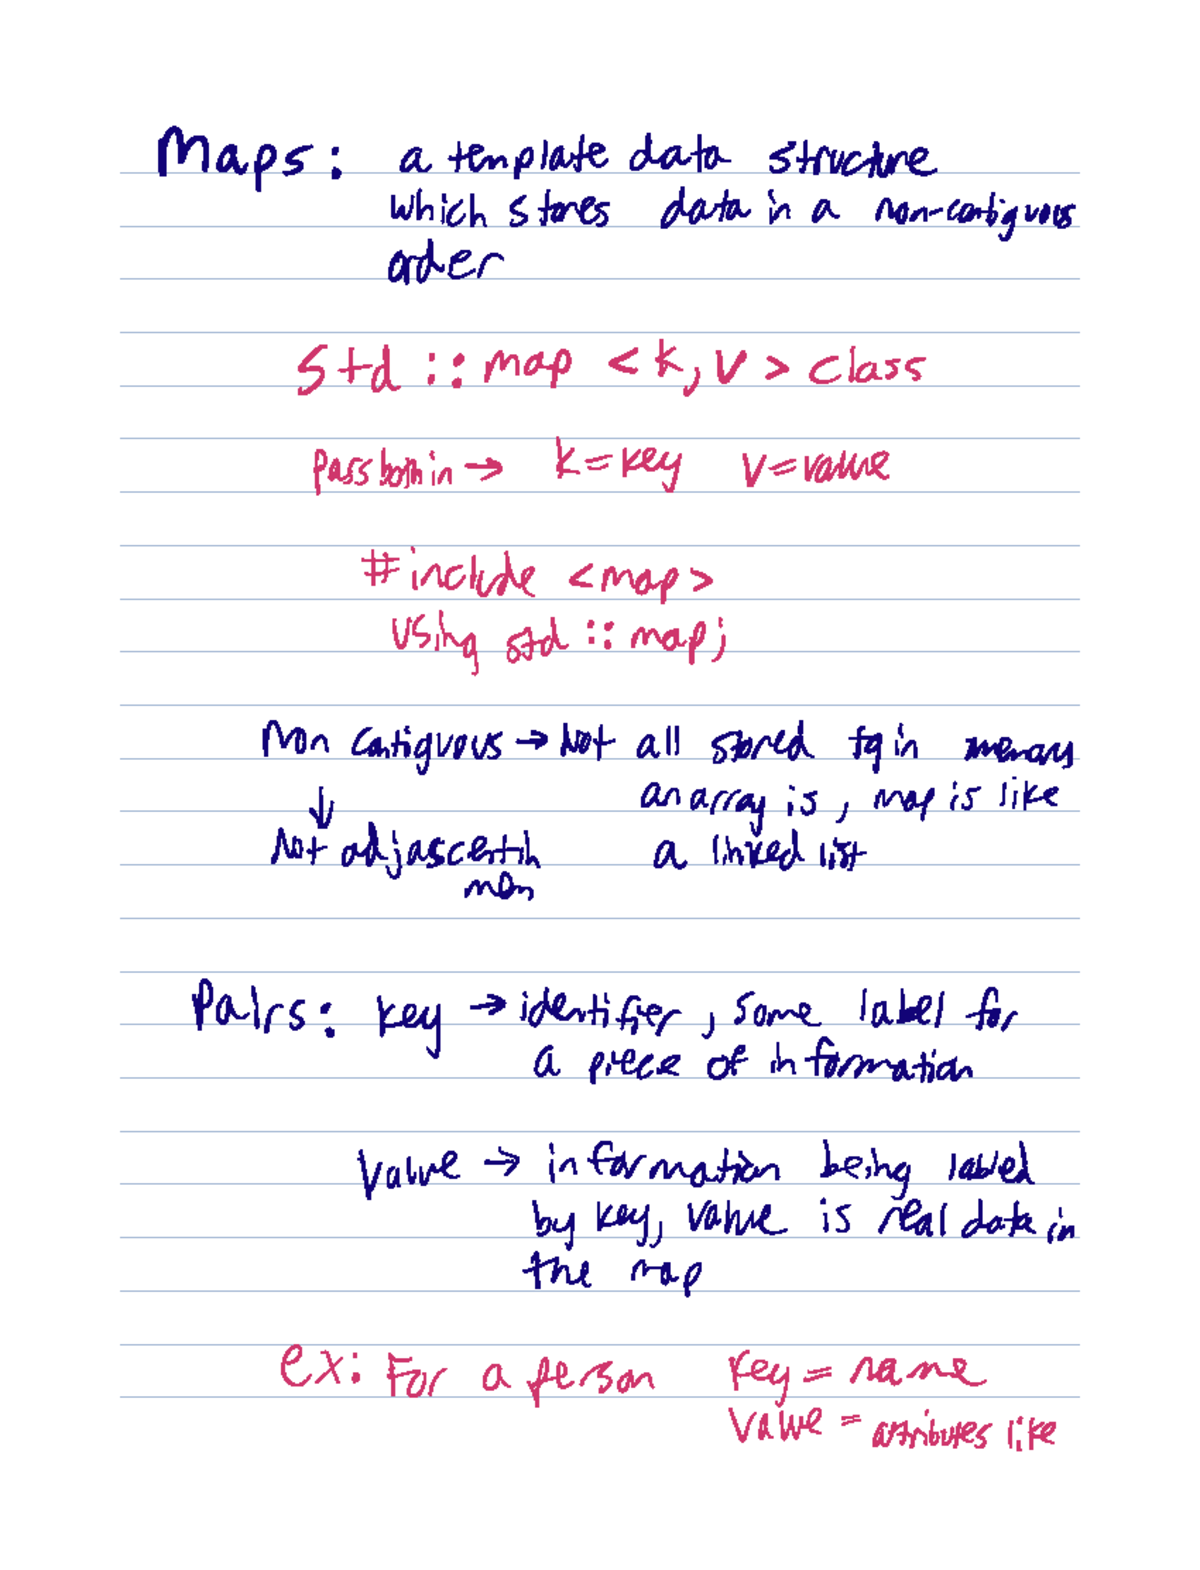 Maps: a template data structure
which stores data in a non-contiguous
order
std :: map <k, v> class
Pass both in → k = key v = value
#include <map>
using std :: map;
Non contiguous → Not all stored in memory
an array is, map is like
↓
Not adjascent in a linked list
mem
Pairs: key → identifier, some label for
a piece of information
Value → information being labled
by key, value is real data in
the map
ex: For a person key = name
value = attributes like